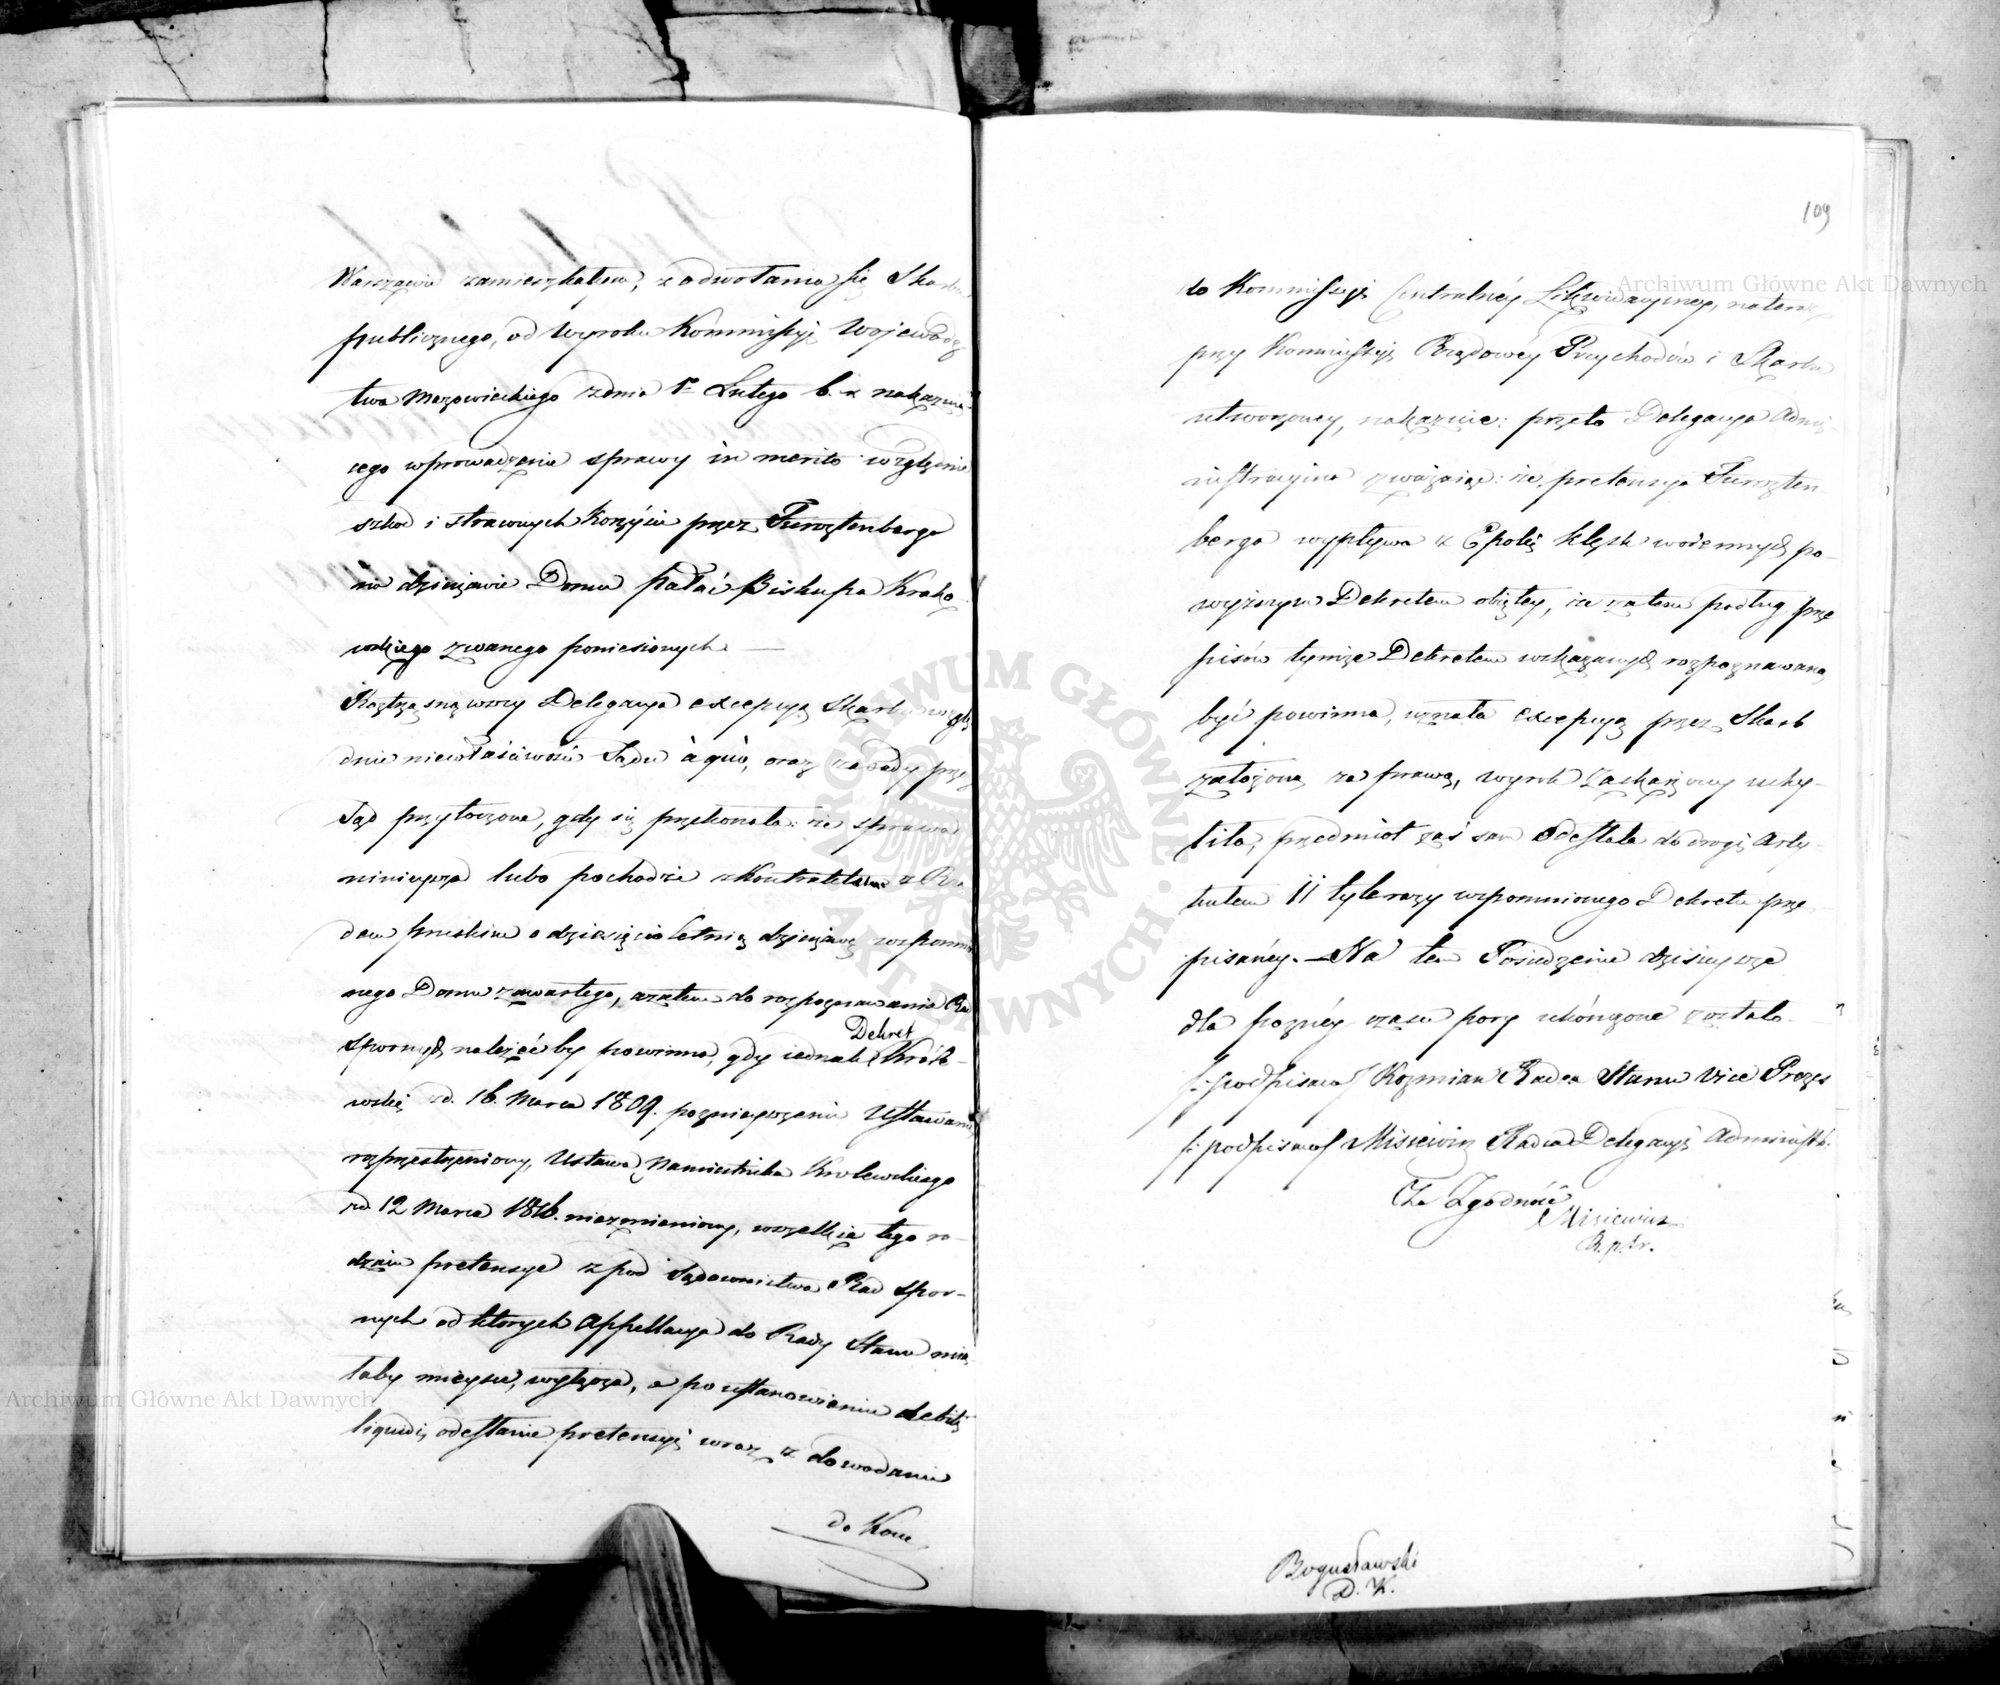 Warszawie zamieszkałym, z odwołania się Skarbu
publicznego, od Wyroku Kommissyi Wojewódz
twa Mazowieckiego z dnia 1o Lutego b. r. nakazuią-
cego wprowadzenie sprawy in merito względnie
szkod i straconych korzyści przez Fursztenberga
na dzierżawie Domu Pałac Biskupa Krako
wskiego zwanego poniesionych
Roztrząsnąwszy Delegacya excepcyą Skarbu wzglę
dnie niewłaściwości Sądu à quo, oraz zasady przez
Sąd przytoczone, gdy się przekonała: że sprawa
ninieysza lubo pochodzi z kontraktu z Rzą
dem pruskim o dziesięcio letnią dzierżawę wspomnio
nego Domu zawartego, a zatem do rozpoznawania Rad
Spornych należéć by powinna, gdy iednak Dekret Króle-
wski z d. 16. Marca 1809. poznieyszemi Ustawami
rozprzestrzeniony, Ustawą Namiestnika Królewskiego
z d. 12 Marca 1816. niezmieniony, wszelkie tego ro-
dzaiu pretensye z pod Sądownictwa Rad Spor-
nych od ktorych Appellacya do Rady Stanu mia
łaby mieysce, wyłącza, a po ustanowieniu debiti
liquidi, odesłanie pretensyi wraz z dowodami
do Kom
109
do Kommissyi Centralnéy Likwidacyiney, natenczas
przy Kommissyi Rządowéy Przychodów i Skarbu
utworzoney, nakazuie: przeto Delegacya Admi-
nistracyina zważaiąc: że pretensya Fursztem
berga wypływa z Epoki klęsk woiennych po-
wyższym Dekretem obiętey, że zatem podług prze
pisów tymże Dekretem wskazanych rozpoznawaną
być powinna, uznała excepcyą przez Skarb
założoną za prawą, wyrok zaskarżony uchy-
liła, przedmiot zaś sam odesłała do drogi Arty-
kułem 11 tylerazy wspomnionego Dekretu prze
pisanéy. — Na tem Posiedzenie dzisieysze
dla pozney czasu pory ukończone zostało.
/:podpisano/ Kozmian Radca Stanu Vice Prezes
/:podpisano/ Misiewicz Radca Delegacyi Administr:
Za Zgodność
Misiewicz
Bogusławski
D. K.
Archiwum Główne Akt Dawnych
Archiwum Główne Akt Dawnych
ARCHIWUM GŁÓWNE AKT DAWNYCH